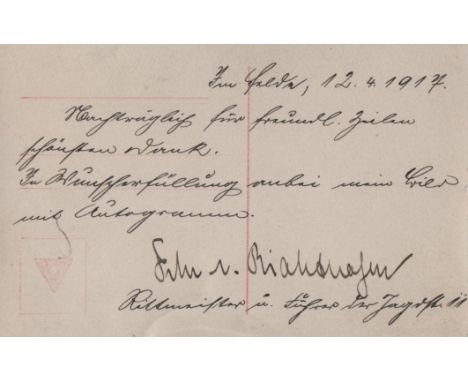 Im Felde, 12.4.1917.
Nachträglich für freundl. Zeilen
schönsten Dank.
In Wunscherfüllung anbei mein Bild
mit Autogramm.
Frhr v. Richthofen
Rittmeister u. Führer der Jagdst. 11